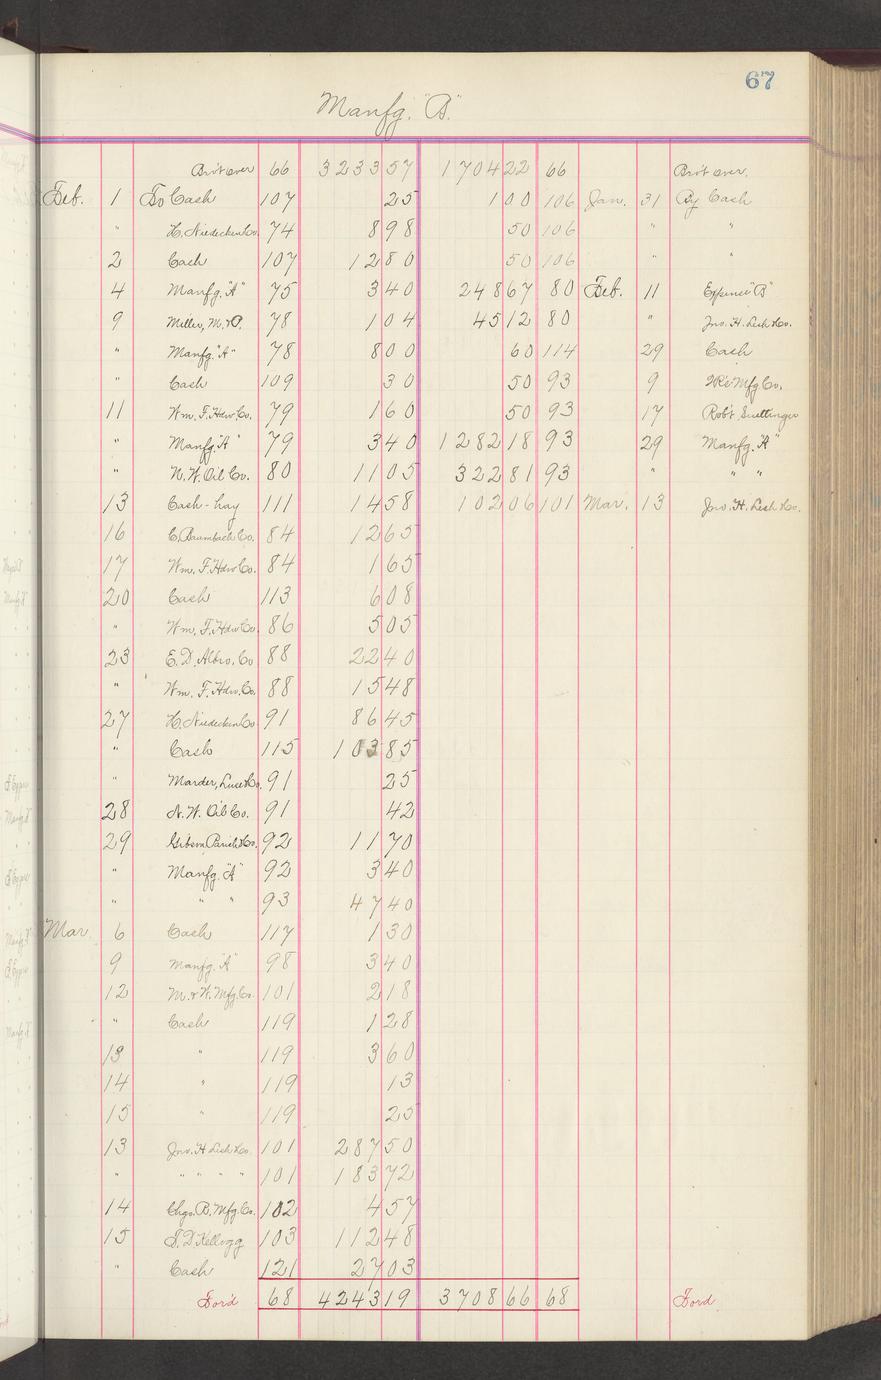 67
Manfg. "B"
Bro't over 66 3233 57 1704 22 66 Bro't over.
Feb. 1 To Cash 107 25 1 00 106 Jan. 31 By Cash
" H. Niedecken Co. 74 8 98 50 106 " "
2 Cash 107 12 80 50 106 " "
4 Manfg. "A" 75 3 40 248 67 80 Feb. 11 Expense "B"
9 Miller, M. & P. 78 1 04 45 12 80 " Jno. H. Lesh & Co.
" Manfg. "A" 78 8 00 60 114 29 Cash
" Cash 109 30 50 93 9 Mfg Co.
11 Wm. F. Hdw Co. 79 1 60 50 93 17 Rob't
" Manfg. "A" 79 3 40 1282 18 93 29 Manfg. "A"
" N. W. Oil Co. 80 11 05 322 81 93 " " "
13 Cash - hay 111 14 58 102 06 101 Mar. 13 Jno. H. Lesh & Co.
16 C. Baumbach Co. 84 12 65
17 Wm. F. Hdw Co. 84 1 65
20 Cash 113 6 08
" Wm. F. Hdw Co. 86 5 05
23 E. D. Albro. Co 88 22 40
" Wm. F. Hdw. Co. 88 15 48
27 H. Niedecken Co 91 86 45
" Cash 115 103 85
" Marder, Luse & Co. 91 25
28 N. W. Oil Co. 91 42
29 Gibson Parish & Co. 92 11 70
" Manfg. "A" 92 3 40
" " " 93 47 40
Mar. 6 Cash 117 1 30
9 Manfg. "A" 98 3 40
12 M. & W. Mfg. Co. 101 2 18
" Cash 119 1 28
13 " 119 3 60
14 " 119 13
15 " 119 25
13 Jno. H. Lesh & Co. 101 287 50
" " " " " 101 183 72
14 Chgo. B. Mfg. Co. 102 4 57
15 Kellogg 103 112 48
" Cash 121 27 03
Ford 68 4243 19 3708 66 68 Ford.